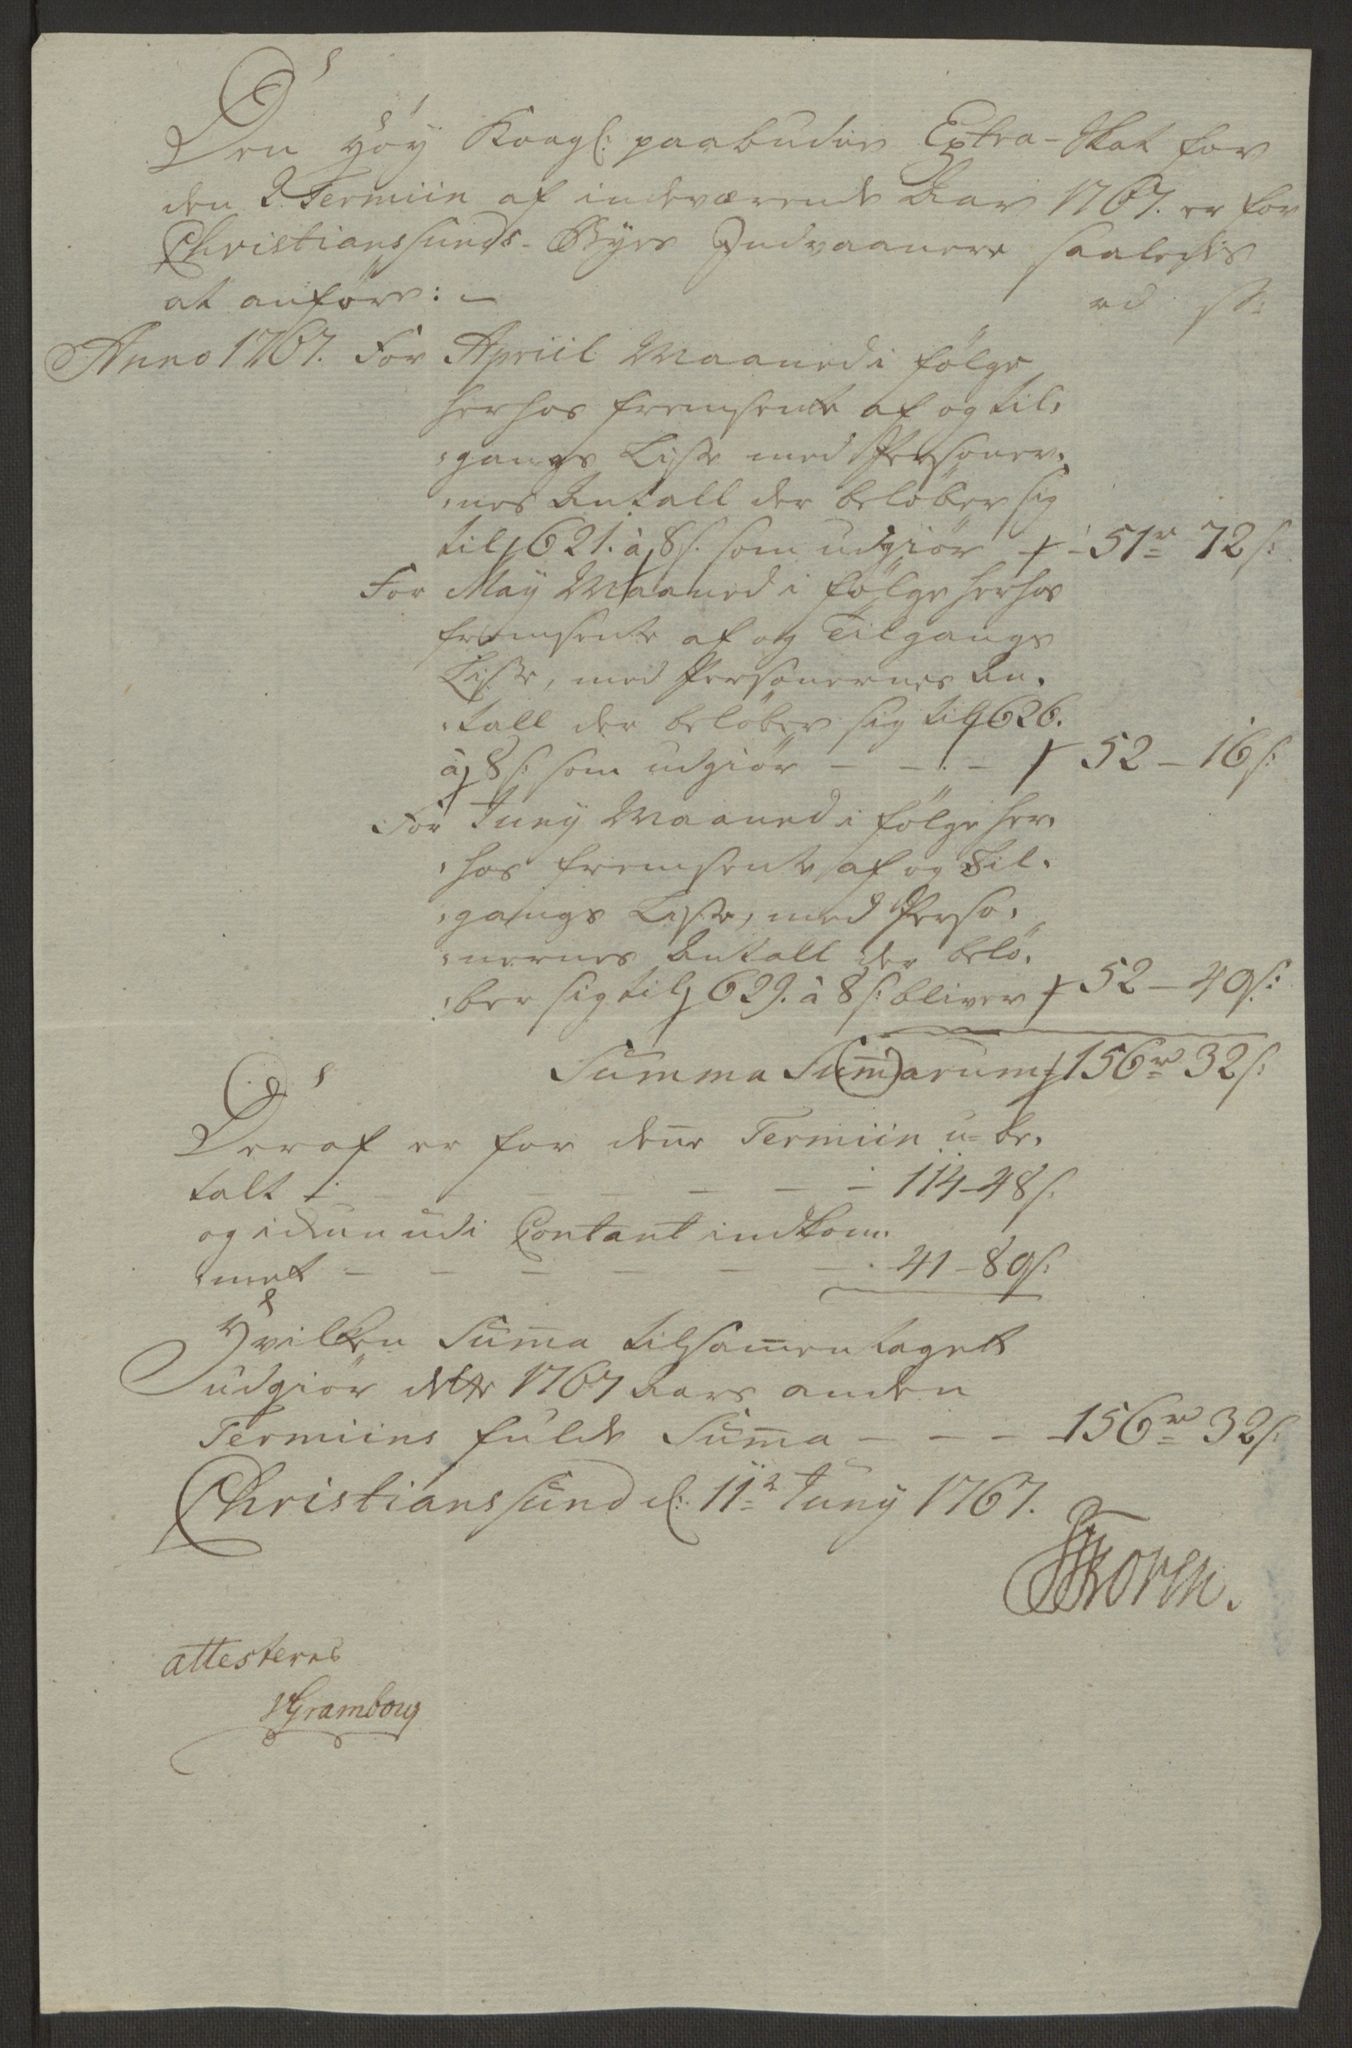 Den Høy Kongl: paabudne Extra-Skat for
den 2. Termiin af indeværende Aar 1767. er for
Christianssunds-Byes Indvaanere saaledes
at anføre: -
rd s:
Anno 1767. For Apriil Maaned i følge
herhos fremsente af og til,
,gangs Liste med Personer,
,nes Antall der beløber sig
til 621. à 8 s. som udgiør - 51 r 72 s:
For May Maaned i følge herhos
fremsente af og Tilgangs
Liste, med Personernes An,
,tall der beløber sig til 626.
à 8 s: som udgiør - - - 52 - 16 s:
For Juny Maaned i følge her,
,hos fremsente af og Til,
,gangs Liste, med Perso,
,nernes Antall der belø,
,ber sig til 629. à 8 s: bliver 52 - 40 s:
Summa Sum̄arum 156 r 32 s:
Deraf er for den̄e Termiin u-be,
talt - - - - - - 114 - 48 s:
og udi Contant indkom,
,met - - - - - - 41 - 80 s:
Hvilken Sum̄a tilsam̄en taget
udgiør dette 1767 Aars anden
Termiins fulde Sum̄a - - - 156 r 32 s:
Christianssund d: 11te Juny 1767.
Koren.
attesteres
Gramboug